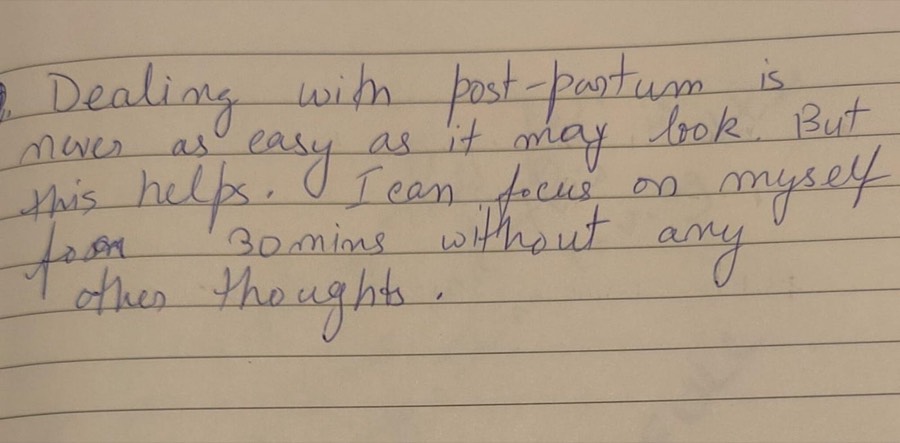 Dealing with post-partum is
never as easy as it may look. But
this helps. I can focus on myself
for 30 mins without any
other thoughts.